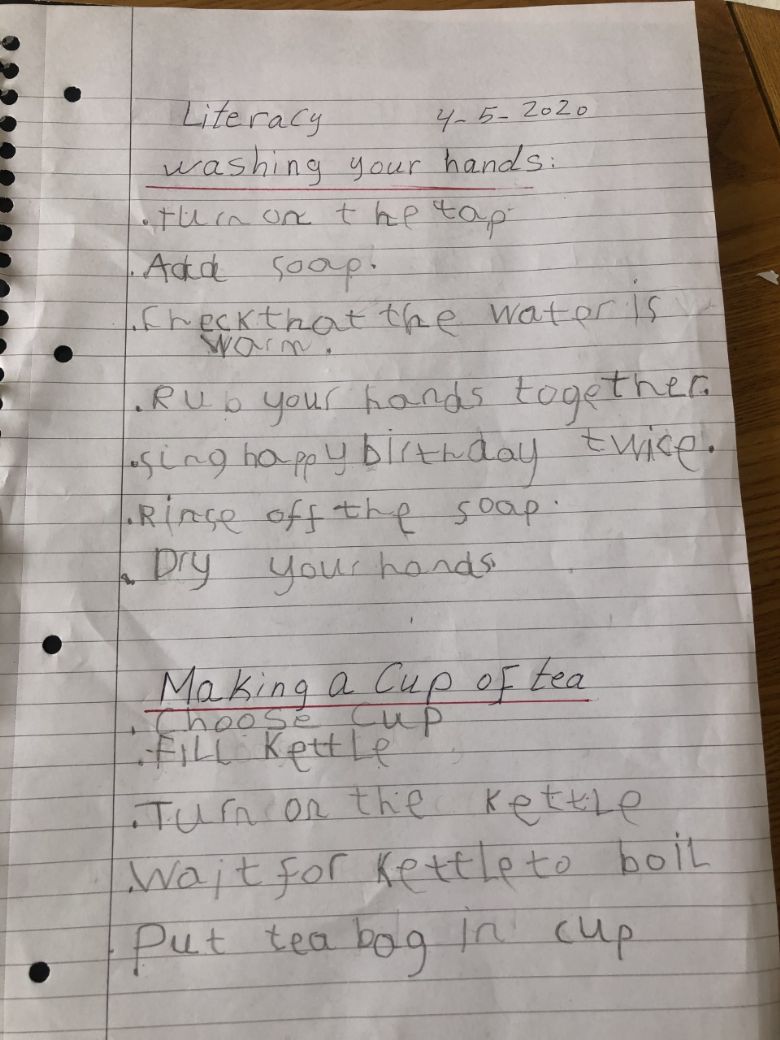 Literacy 4-5-2020
washing your hands:
. turn on the tap.
. Add soap.
. Check that the water is
warm.
. Rub your hands together.
. sing happy birthday twice.
. Rinse off the soap.
. Dry your hands
Making a Cup of tea
. Choose Cup
. Fill Kettle
. Turn on the kettle
. Wait for kettle to boil
. Put tea bag in cup